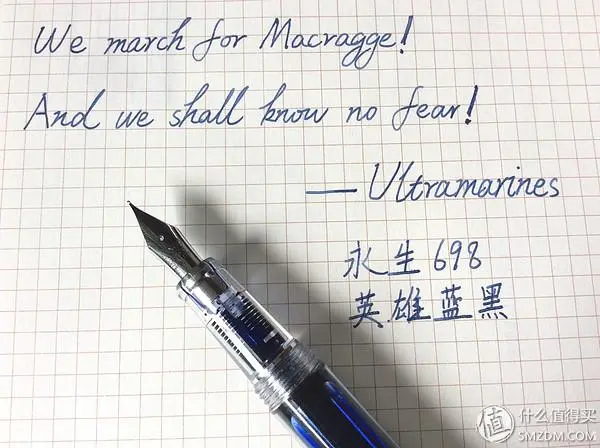 We march for Macragge!
And we shall know no fear!
— Ultramarines
永生 698
英雄蓝黑
值 什么值得买
SMZDM.COM